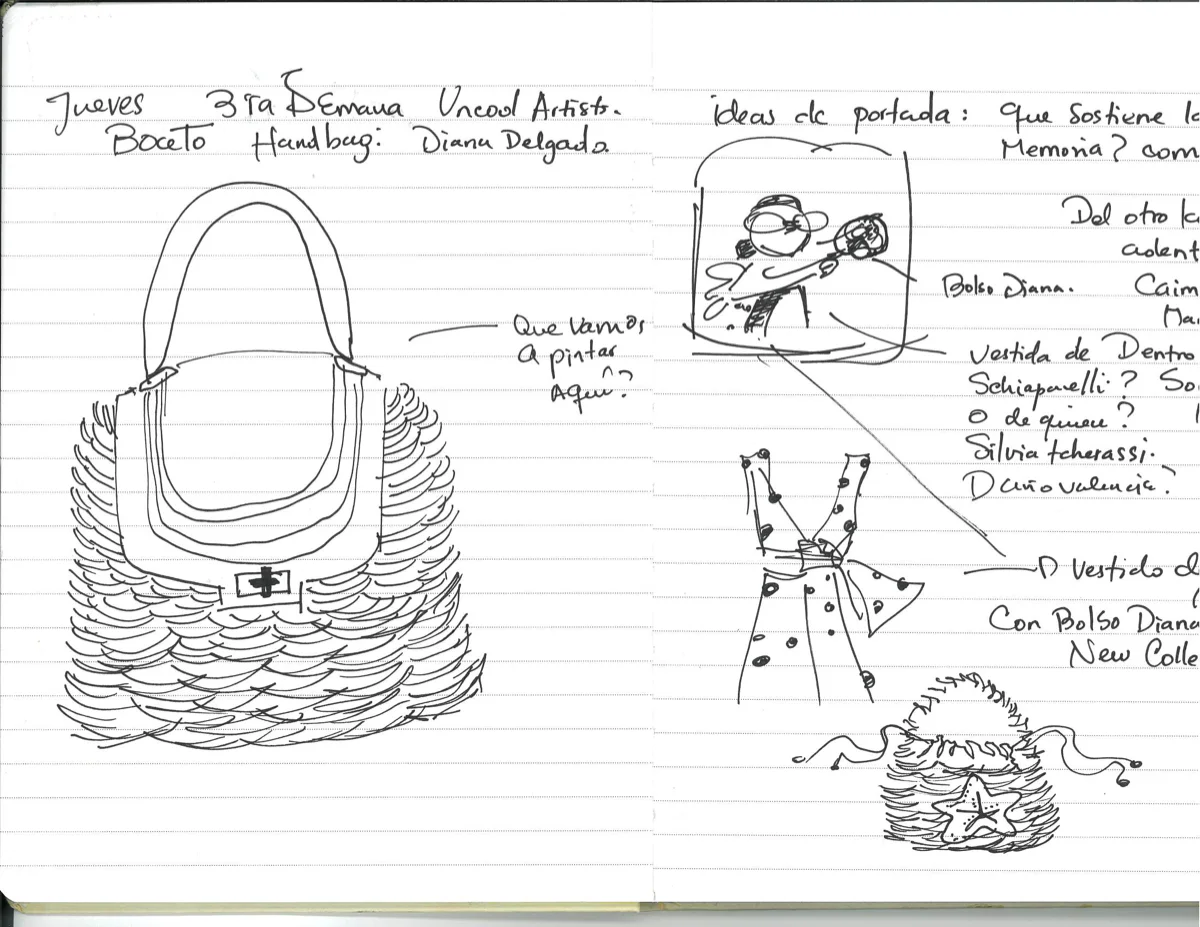 Jueves 3ra Semana Uncool Artists.
Boceto Handbag: Diana Delgado.
Que vamos
a pintar
Aquí?
ideas de portada: Que Sostiene la
Memoria? com
Del otro la
adent
Bolso Diana. Caim
Ma
Vestida de Dentro
Schiaparelli? So
o de quien?
Silvia tcherassi.
Daño valencia?
D Vestido d
Con Bolso Diana
New Colle